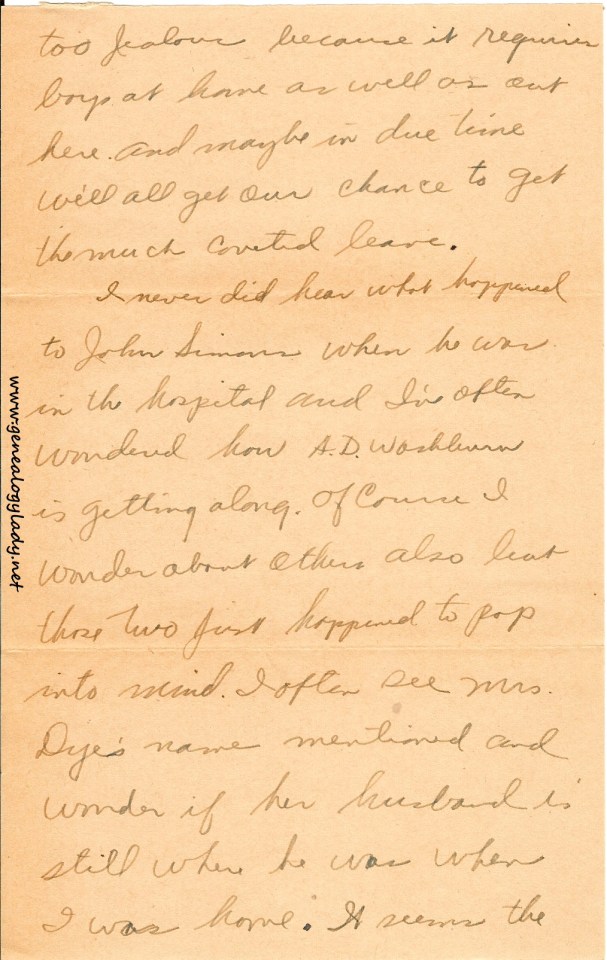 too jealous because it requires
boys at home as well as out
here. And maybe in due time
we'll all get our chance to get
the much coveted leave.
I never did hear what happened
to John Simons when he was
in the hospital and I've often
wondered how A.D. Washburn
is getting along. Of Course I
wonder about others also but
those two just happened to pop
into mind. I often see Mrs.
Dye's name mentioned and
wonder if her husband is
still where he was when
I was home. It seems the
www.genealogylady.net